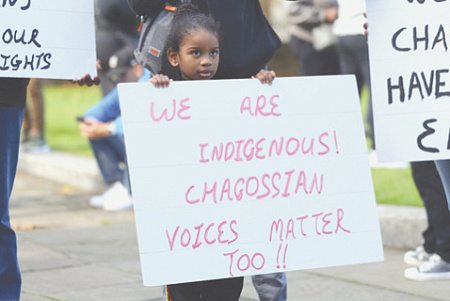 OUR
RIGHTS
WE ARE
INDIGENOUS!
CHAGOSSIAN
VOICES MATTER
TOO!!
CHA
HAVE